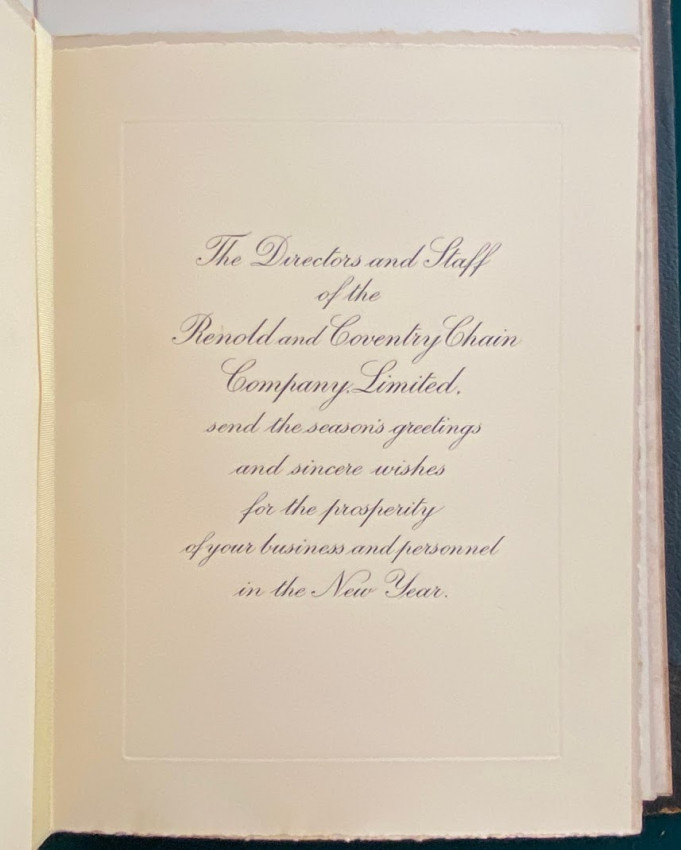 The Directors and Staff
of the
Renold and Coventry Chain
Company, Limited,
send the season's greetings
and sincere wishes
for the prosperity
of your business and personnel
in the New Year.